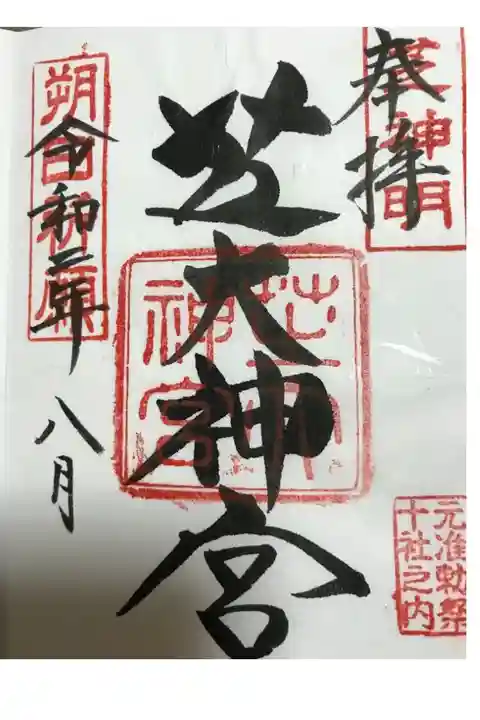 奉拝
芝神明
芝大神宮
芝大神宮
朔日祈願
令和二年
八月
元准勅祭
十社之内